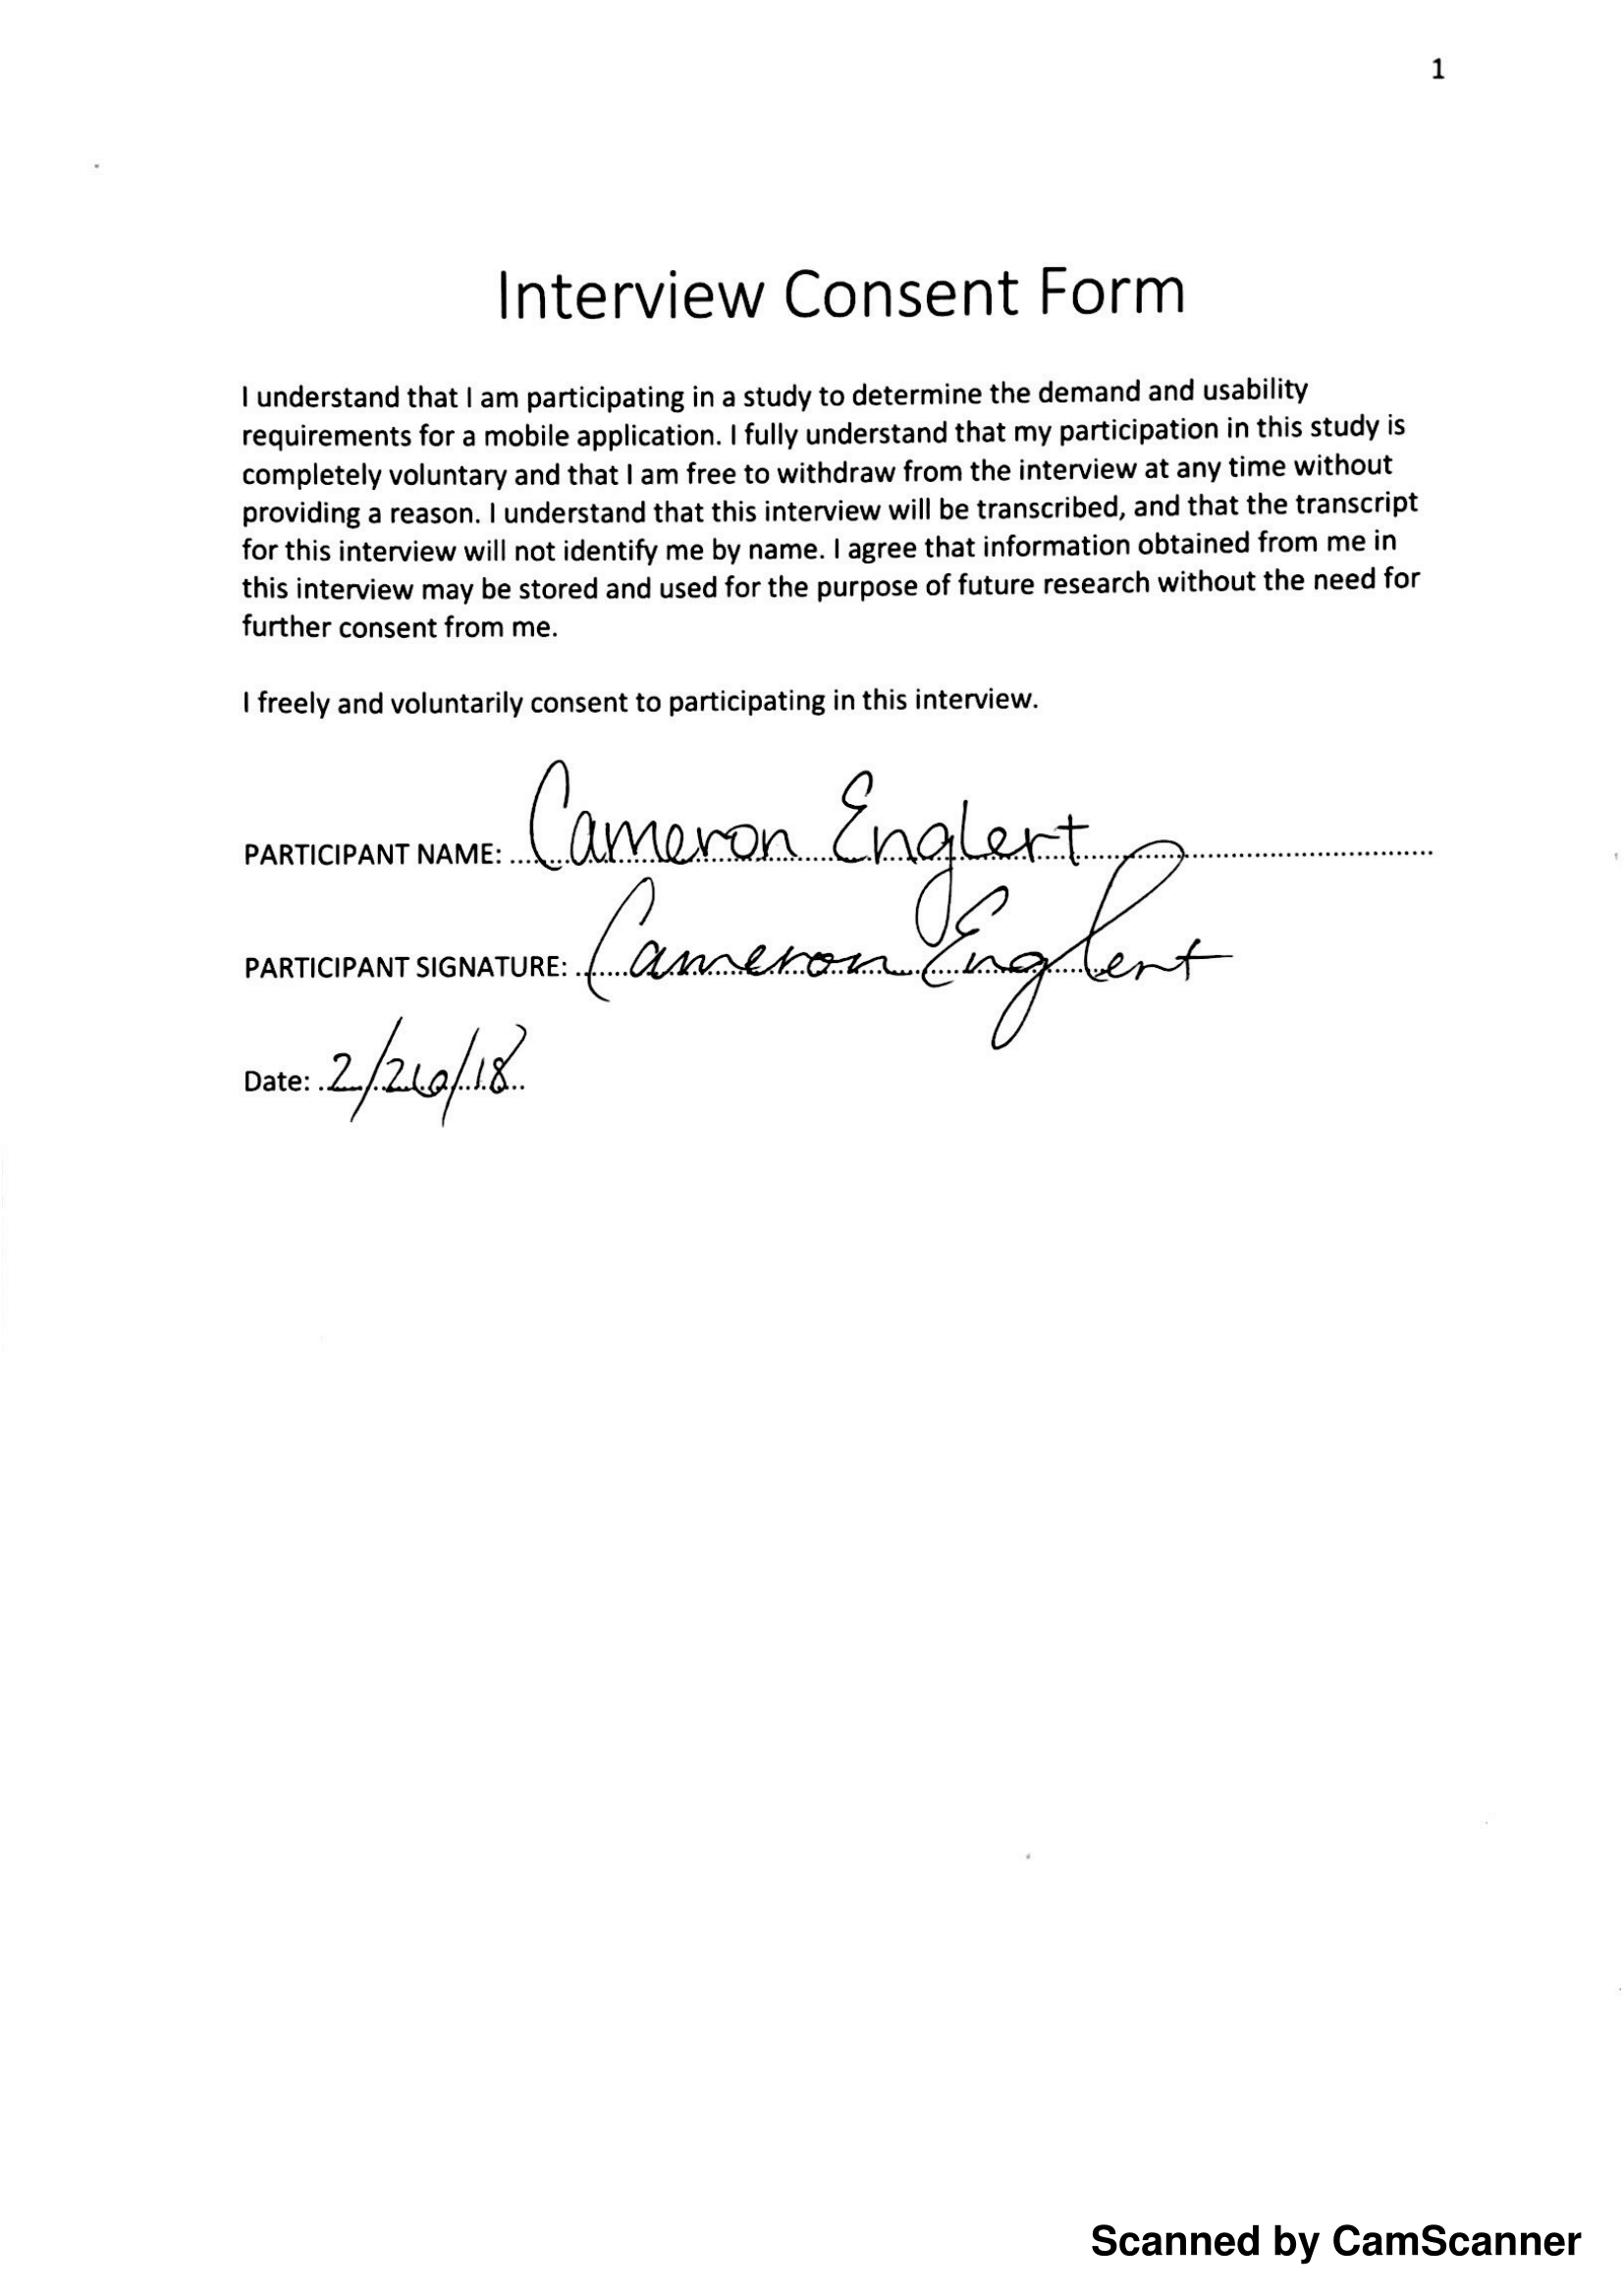 1
Interview Consent Form
I understand that I am participating in a study to determine the demand and usability
requirements for a mobile application. I fully understand that my participation in this study is
completely voluntary and that I am free to withdraw from the interview at any time without
providing a reason. I understand that this interview will be transcribed, and that the transcript
for this interview will not identify me by name. I agree that information obtained from me in
this interview may be stored and used for the purpose of future research without the need for
further consent from me.
I freely and voluntarily consent to participating in this interview.
PARTICIPANT NAME: Cameron Englert
PARTICIPANT SIGNATURE: Cameron Englert
Date: 2/26/18
Scanned by CamScanner